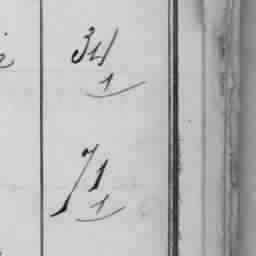 34
1
71
1